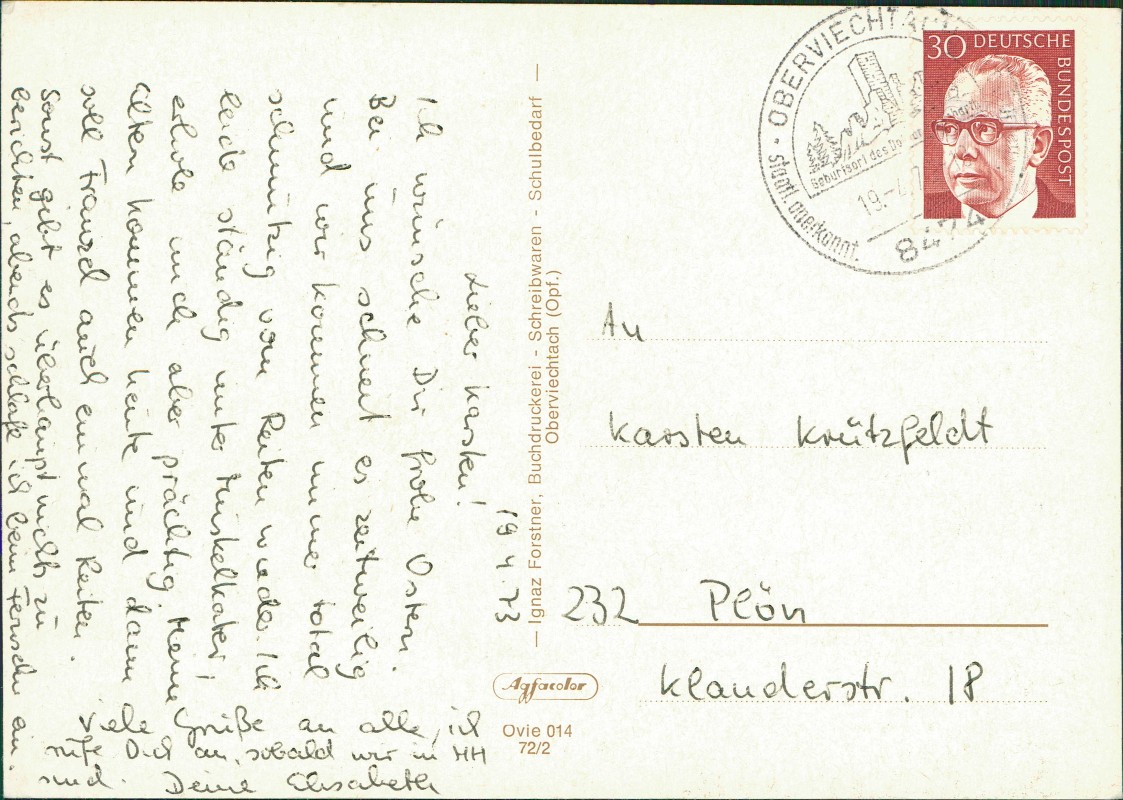 19.4.73
Lieber Karsten!
Ich wünsche Dir frohe Ostern.
Bei uns schneit es zeitweilig
und wir kommen immer total
schmutzig vom Reiten wieder. Ich
leide ständig unter Muskelkater,
erhole mich aber prächtig. Meine
Alten kommen heute und dann
soll Traud auch einmal Reiten.
Sonst gibt es überhaupt nichts zu
berichten, abends schlafe ich beim Fernsehn ein.
Viele Grüße an alle, ich
rufe Dich an, sobald wir in HH
sind. Deine Elisabeth
— Ignaz Forstner, Buchdruckerei - Schreibwaren - Schulbedarf —
Oberviechtach (Opf.)
Agfacolor
Ovie 014
72/2
OBERVIECHTACH
Geburtsort des
staatl. anerkannt.
19.-4.7
8474
30 DEUTSCHE
BUNDESPOST
An
Karsten Kreützfeldt
232 Plön
Klanderstr. 18